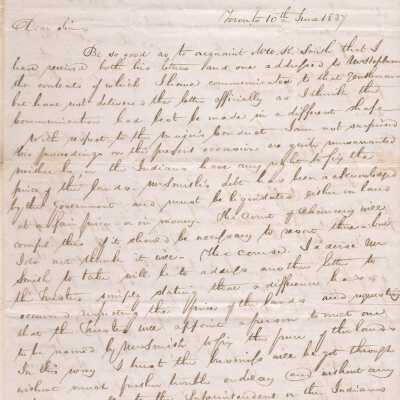 Toronto 10th June 1837
Dear Sir,
Be so good as to acquaint Mr. Smith that I
have received both his letters and one addressed to
the contents of which I have communicated to that Gentleman
but have not delivered the letter officially as I think the
Communication had best be made in a different shape
With respect to the Conduct I am not surprised
his proceedings on the present occasion are quite unwarranted
neither he nor the Indians have any right to fix the
price of the lands. Mr Smith's debt has been acknowledged
by the Government and must be liquidated either in land
at a fair price or in money. The Court of Chancery will
compel this if it should be necessary to resort there but
I do not think it will. The course I advise Mr
Smith to take will be to address another letter to
the Trustees simply stating that a difference has
occurred respecting the price of the lands and requesting
that the Trustees will appoint a person to meet one
to be named by Mr Smith to fix the price of the lands
In this way I trust the business will be got through
without much further trouble or delay (and without any
to the Superintendent or the Indians